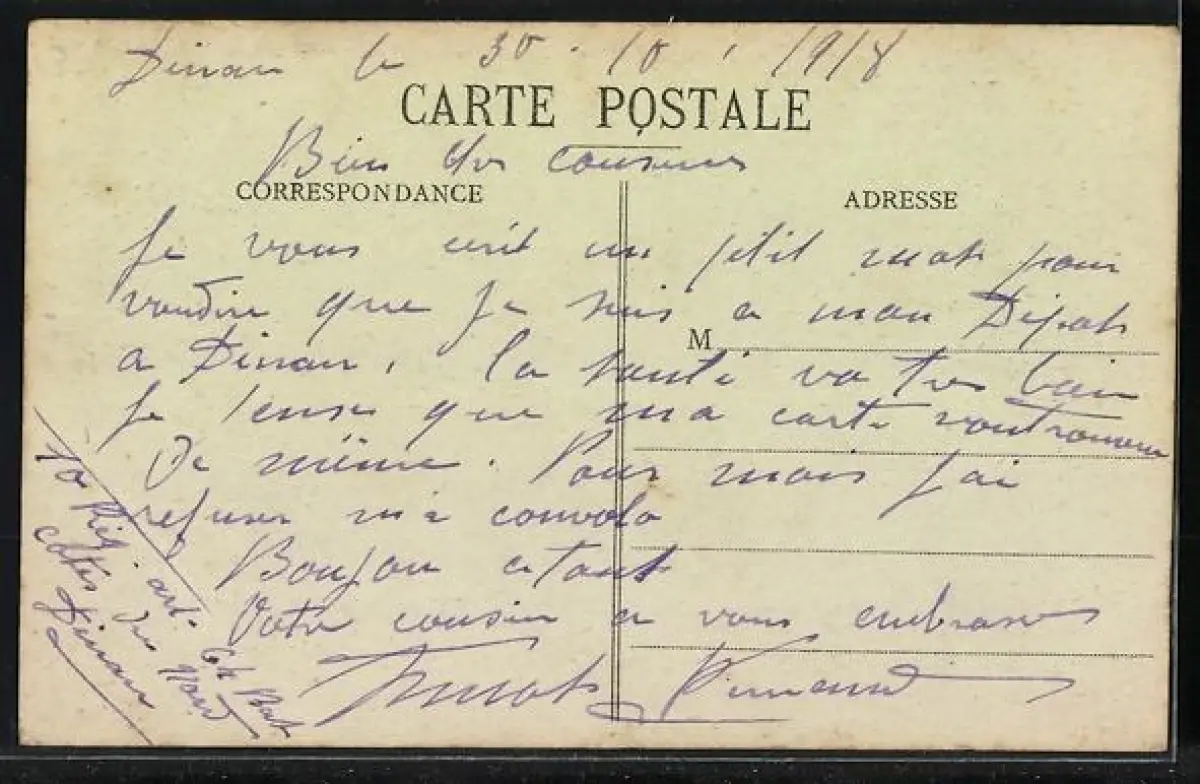 Dinan le 30.10.1918
CARTE POSTALE
Bien chers cousines
CORRESPONDANCE
ADRESSE
Je vous ecrit un ptit mots pour
voudire que Je suis a mon Dépots
M
a Dinan, la santé va tres bien
Je pense que ma carte vous trouvera
De même. Pour mois Jai
refuser ma convolo
Boujou a tout
Votre cousin a vous embrasses
10 Rég. art. 64 Bat
cotes du Nord
Dinan